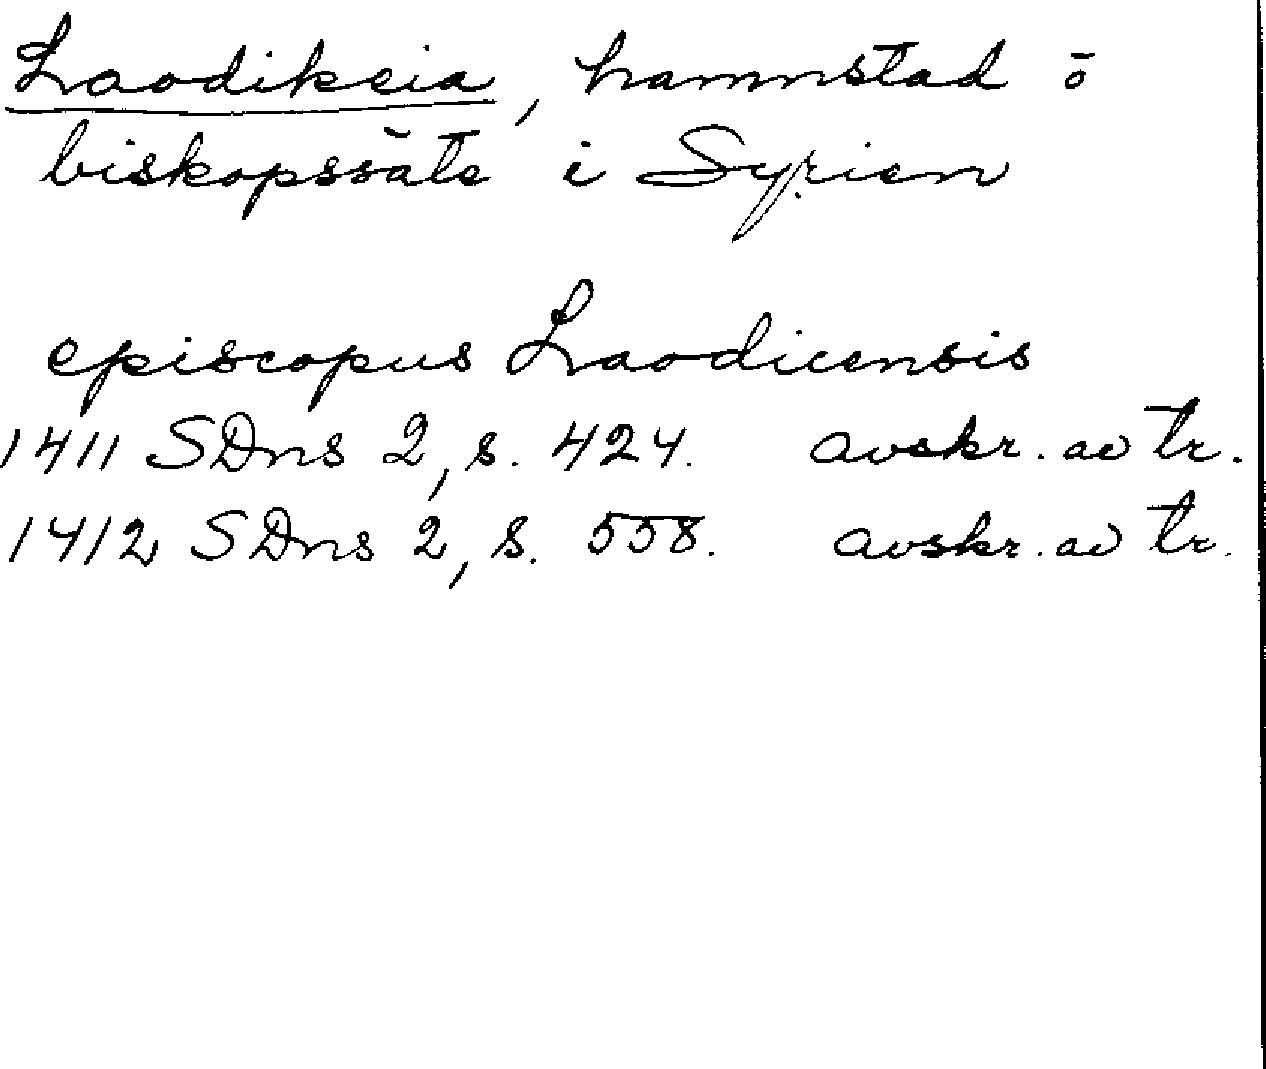 Laodikeia, hamnstad ō
biskopssäte i Syrien
episcopus Laodicensis
1411 SDns 2, s. 424. avskr. av tr.
1412 SDns 2, s. 558. avskr. av tr.